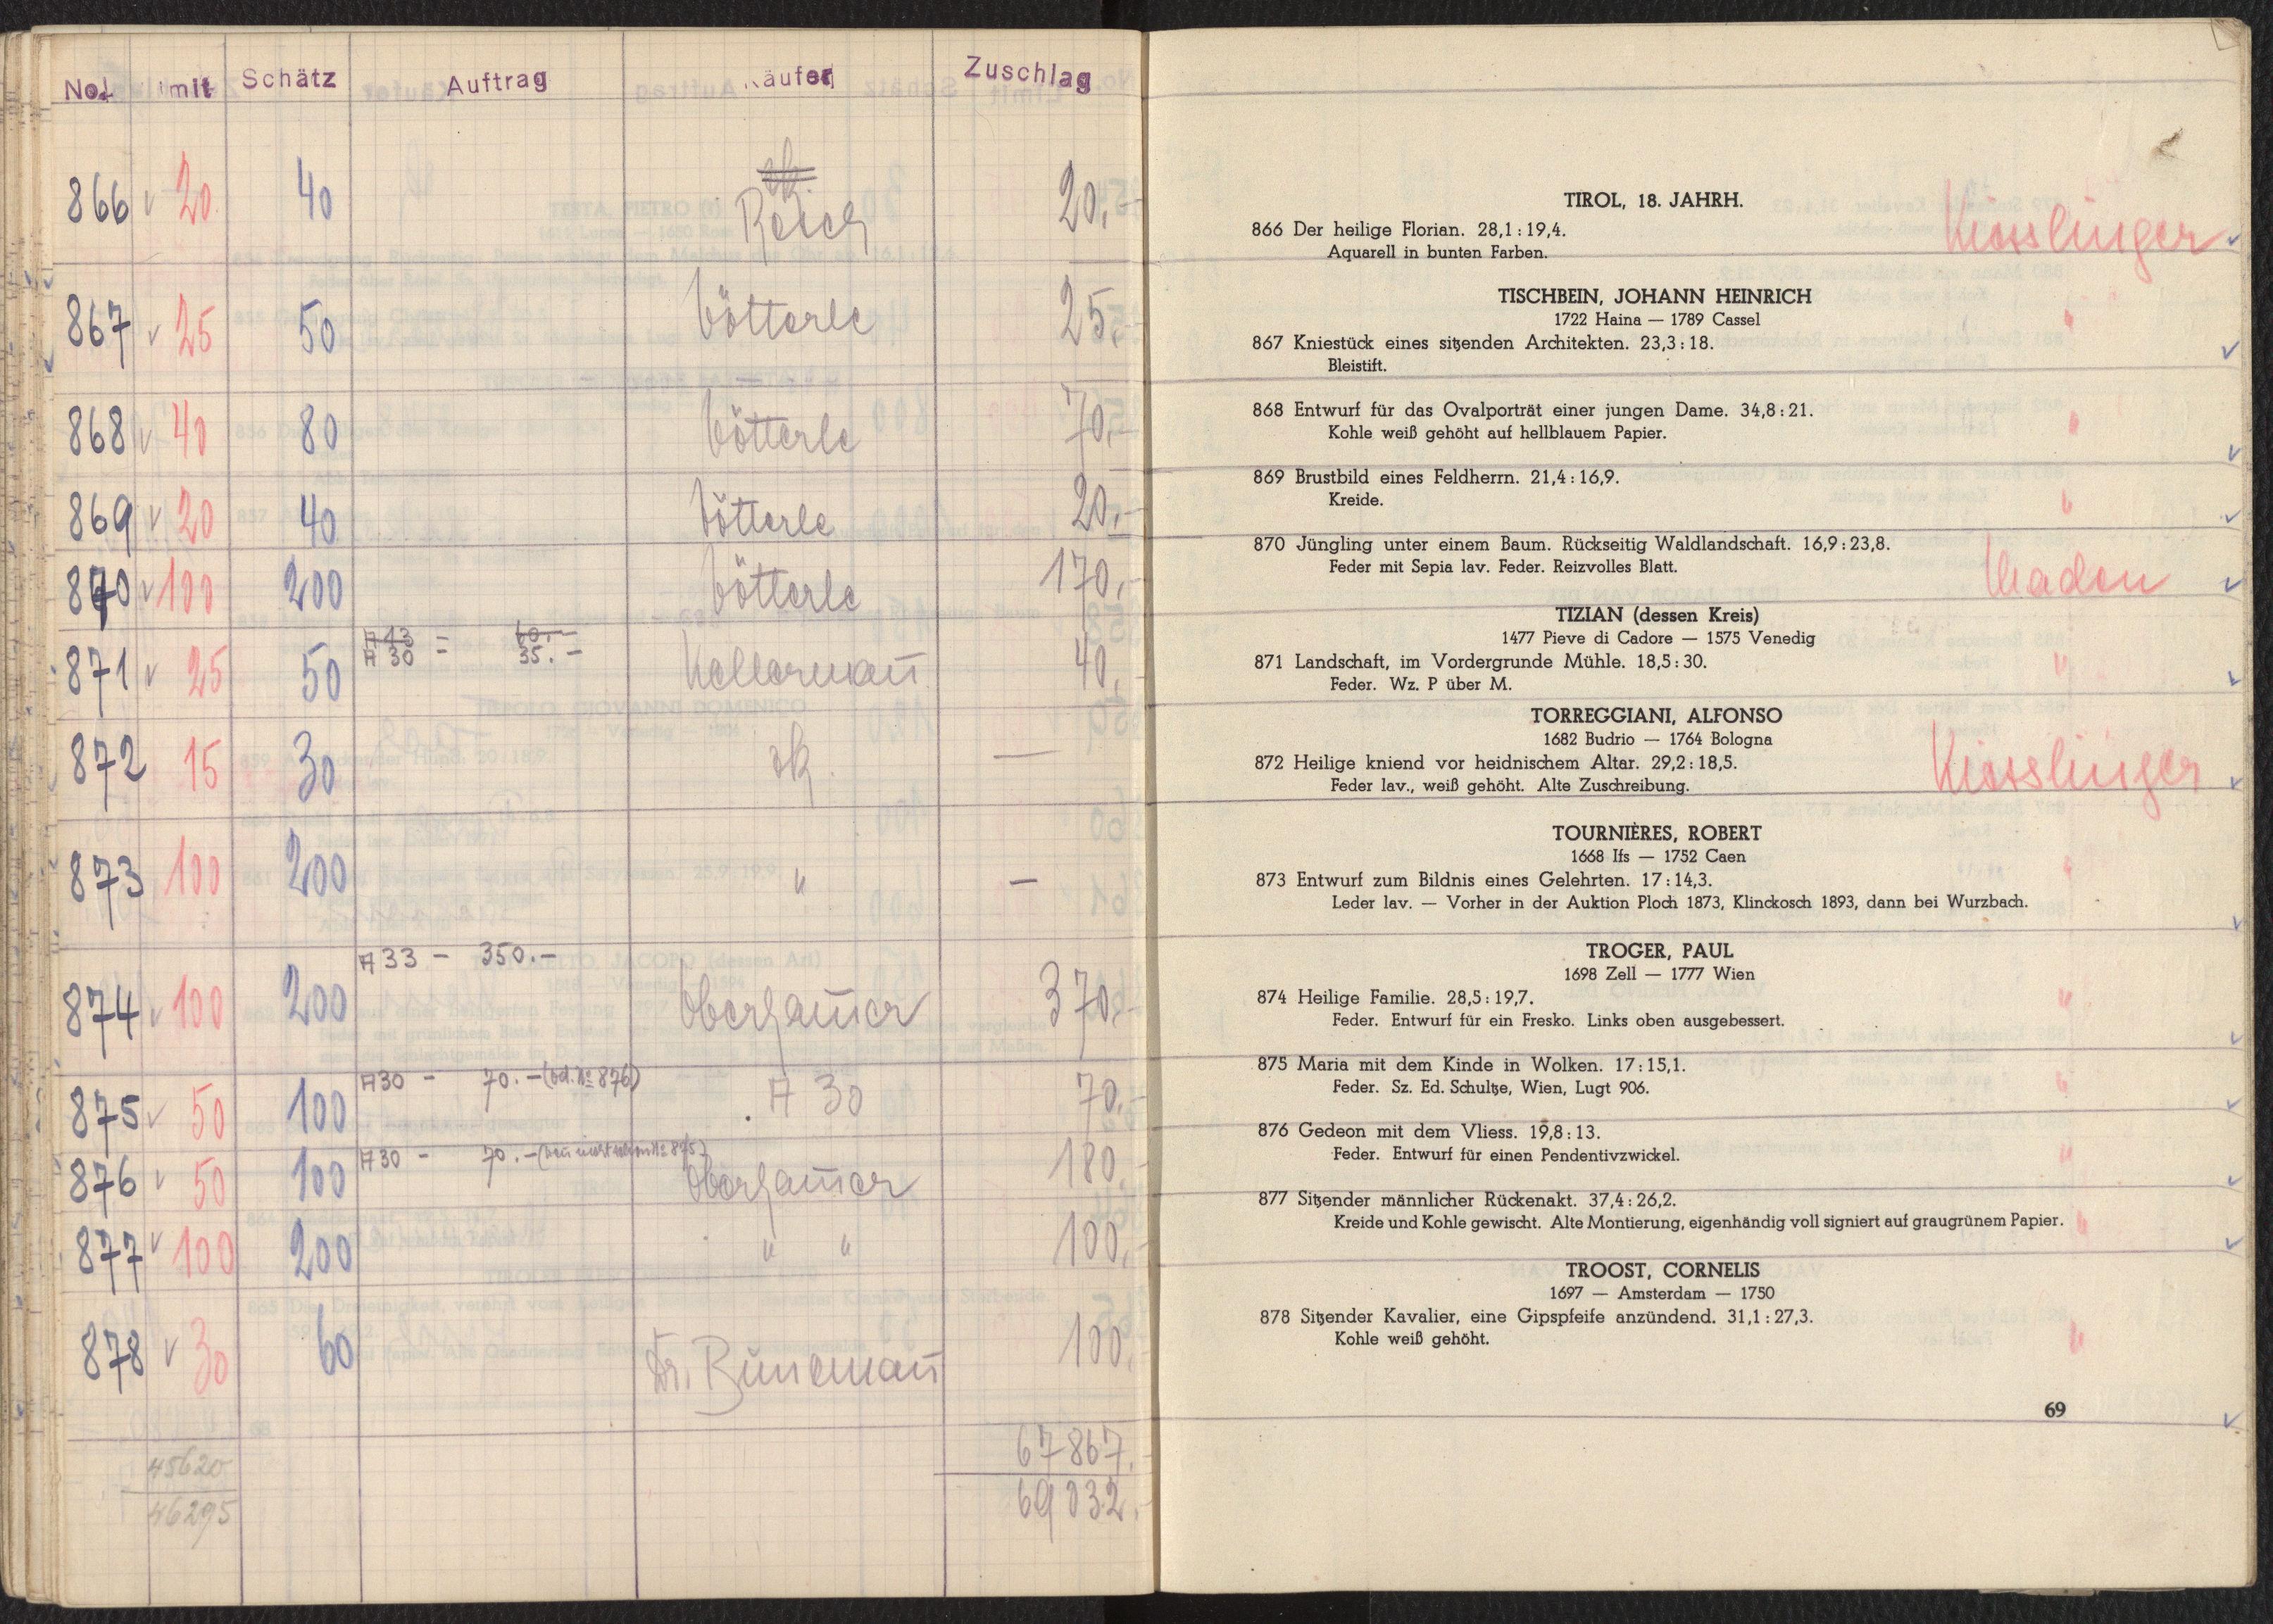 No. Limit Schätz Auftrag Käufer Zuschlag
866 v 20 40 zk. Reich 20,-
867 v 25 50 Götterle 25,-
868 v 40 80 Götterle 70,-
869 v 20 40 Götterle 20,-
870 v 100 200 Götterle 170,-
A 43 - 60.-
871 v 25 50 A 30 - 35.- Kellermañ 40,
872 15 30 zk. —
873 100 200 " —
A 33 - 350.-
874 v 100 200 370,-
A 30 - 70.- (od. No 876)
875 v 50 100 A 30 70,-
A 30 - 70.- 875)
876 v 50 100 180,
877 v 100 200 " " 100,
878 v 30 60 Dr. 100,
67867.
45620
46295
69032.
TIROL, 18. JAHRH.
866 Der heilige Florian. 28,1 : 19,4.
Kiesslinger
Aquarell in bunten Farben.
TISCHBEIN, JOHANN HEINRICH
1722 Haina — 1789 Cassel
"
867 Kniestück eines sitzenden Architekten. 23,3 : 18.
Bleistift.
868 Entwurf für das Ovalporträt einer jungen Dame. 34,8 : 21.
Kohle weiß gehöht auf hellblauem Papier.
"
869 Brustbild eines Feldherrn. 21,4 : 16,9.
Kreide.
"
870 Jüngling unter einem Baum. Rückseitig Waldlandschaft. 16,9 : 23,8.
Feder mit Sepia lav. Feder. Reizvolles Blatt.
TIZIAN (dessen Kreis)
1477 Pieve di Cadore — 1575 Venedig
871 Landschaft, im Vordergrunde Mühle. 18,5 : 30.
"
Feder. Wz. P über M.
TORREGGIANI, ALFONSO
1682 Budrio — 1764 Bologna
872 Heilige kniend vor heidnischem Altar. 29,2 : 18,5.
Kiesslinger
Feder lav., weiß gehöht. Alte Zuschreibung.
TOURNIÈRES, ROBERT
1668 Ifs — 1752 Caen
"
873 Entwurf zum Bildnis eines Gelehrten. 17 : 14,3.
Leder lav. — Vorher in der Auktion Ploch 1873, Klinckosch 1893, dann bei Wurzbach.
TROGER, PAUL
1698 Zell — 1777 Wien
874 Heilige Familie. 28,5 : 19,7.
"
Feder. Entwurf für ein Fresko. Links oben ausgebessert.
875 Maria mit dem Kinde in Wolken. 17 : 15,1.
Feder. Sz. Ed. Schultze, Wien, Lugt 906.
"
876 Gedeon mit dem Vliess. 19,8 : 13.
Feder. Entwurf für einen Pendentivzwickel.
"
877 Sitzender männlicher Rückenakt. 37,4 : 26,2.
Kreide und Kohle gewischt. Alte Montierung, eigenhändig voll signiert auf graugrünem Papier.
"
TROOST, CORNELIS
1697 — Amsterdam — 1750
878 Sitzender Kavalier, eine Gipspfeife anzündend. 31,1 : 27,3.
Kohle weiß gehöht.
"
69